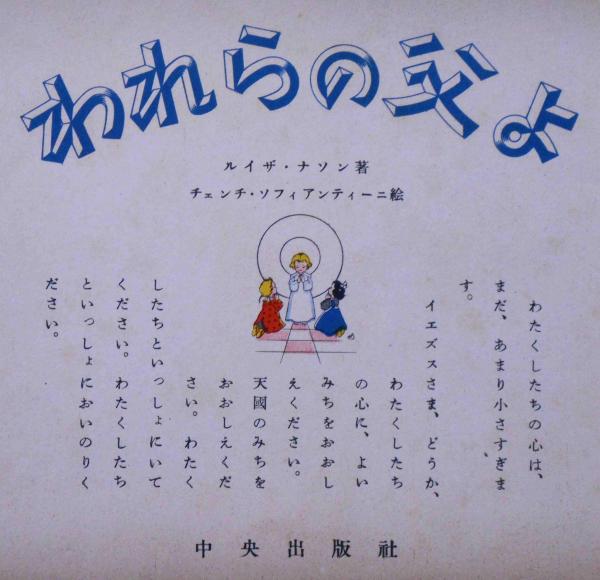 われらの父よ
ルイザ・ナソン著
チェンチ・ソフィアンティーニ絵
わたくしたちの心は、
まだ、あまり小さすぎま
す。
イエズスさま、どうか、
わたくしたち
の心に、よい
みちをおおし
えください。
天國のみちを
おおしえくだ
さい。わたく
したちといっしょにいて
ください。わたくしたち
といっしょにおいのりく
ださい。
中央出版社